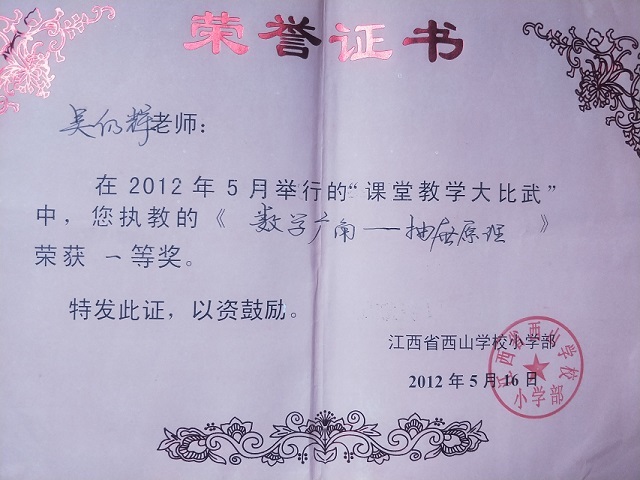 荣誉证书
吴仍辉老师：
在2012年5月举行的“课堂教学大比武”
中，您执教的《 数学广角——抽屉原理 》
荣获 一等奖。
特发此证，以资鼓励。
江西省西山学校小学部
2012年5月16日
江西省西山学校
小学部